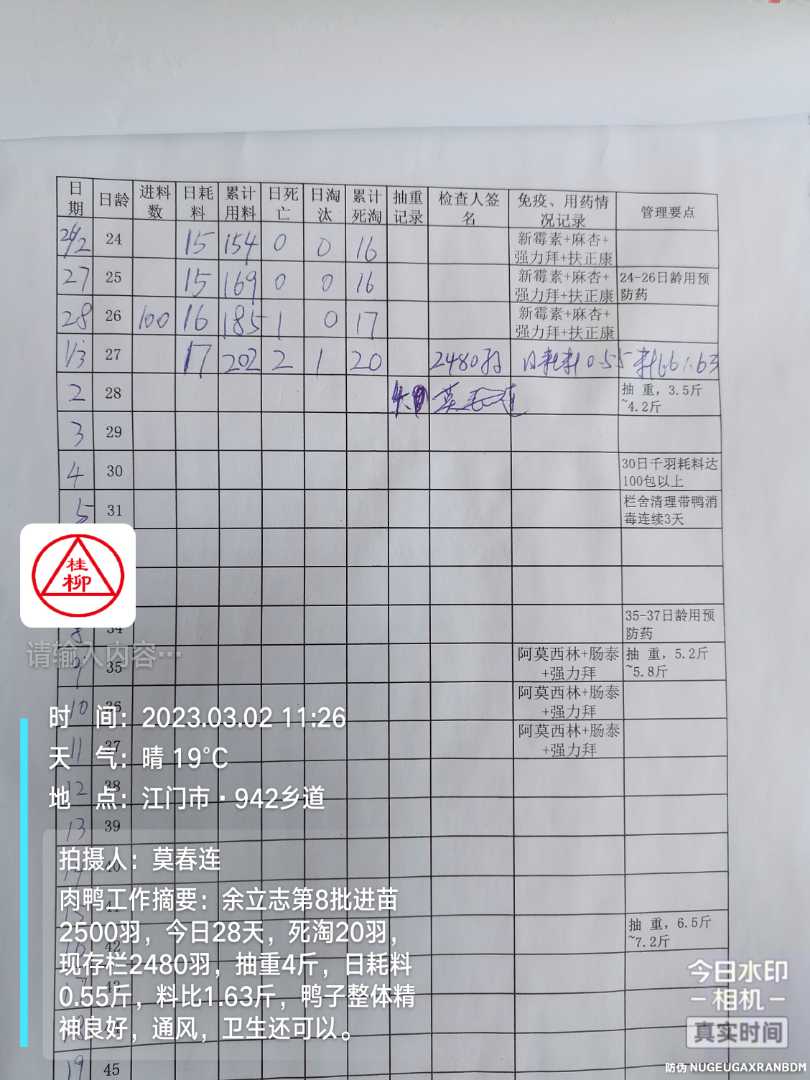 日期 日龄 进料数 日耗料 累计用料 日死亡 日淘汰 累计死淘 抽重记录 检查人签名 免疫、用药情况记录 管理要点
26/2 24 15 154 0 0 16 新霉素+麻杏+强力拜+扶正康
27 25 15 169 0 0 16 新霉素+麻杏+强力拜+扶正康 24-26日龄用预防药
28 26 100 16 185 1 0 17 新霉素+麻杏+强力拜+扶正康
1/3 27 17 202 2 1 20 2480羽 日耗料0.55 料比1.63
2 28 莫春连 抽 重，3.5斤~4.2斤
3 29
4 30 30日千羽耗料达100包以上
5 31 栏舍清理带鸭消毒连续3天
桂柳
34 35-37日龄用预防药
请输入内容…
9 35 阿莫西林+肠泰+强力拜 抽 重，5.2斤~5.8斤
10 36 阿莫西林+肠泰+强力拜
11 37 阿莫西林+肠泰+强力拜
时 间：2023.03.02 11:26
天 气：晴 19℃
地 点：江门市·942乡道
12 38
13 39
40
41
42 抽 重，6.5斤~7.2斤
拍摄人：莫春连
肉鸭工作摘要：余立志第8批进苗
2500羽，今日28天，死淘20羽，
现存栏2480羽，抽重4斤，日耗料
0.55斤，料比1.63斤，鸭子整体精
神良好，通风，卫生还可以。
19 45
今日水印
相机
真实时间
防伪 NUGEUGAXRANBDM